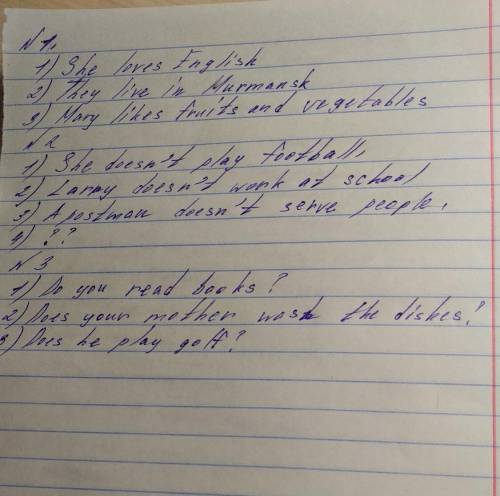 N 1.
1) She loves English
2) They live in Murmansk
3) Mary likes fruits and vegetables
N 2
1) She doesn't play football.
2) Larry doesn't work at school
3) A postman doesn't serve people.
4) ??
N 3
1) Do you read books?
2) Does your mother wash the dishes?
3) Does he play golf?